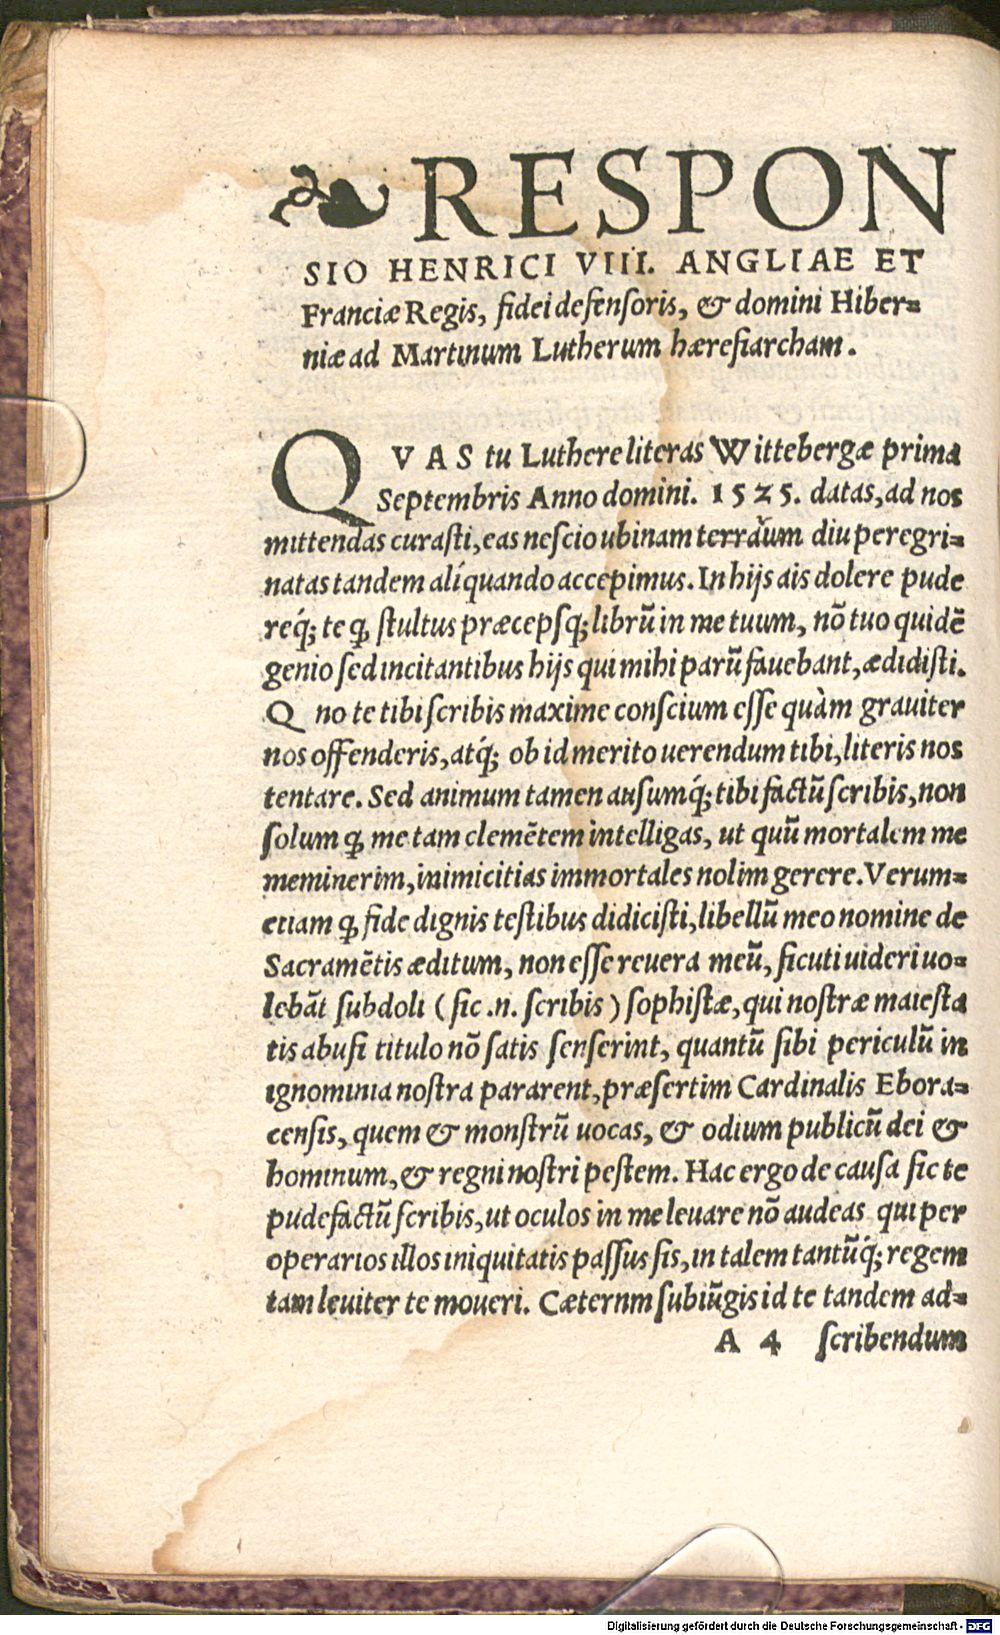 ❧ RESPON
SIO HENRICI VIII. ANGLIAE ET
Franciæ Regis, fidei defensoris, & domini Hiber=
niæ ad Martinum Lutherum hæresiarcham.
QVAS tu Luthere literas Wittebergæ prima
Septembris Anno domini. 1525. datas, ad nos
mittendas curasti, eas nescio ubinam terrarũm diu peregri=
natas tandem alíquando accepimus. In hijs ais dolere pude
req́; te ꝙ stultus præcepsq́; librũ in me tuum, nõ tuo quidẽ
genio sed incitantibus hijs qui mihi parũ fauebant, ædidisti.
Quo te tibi scribis maxime conscium esse quàm grauiter
nos offenderis, atq́; ob id merito uerendum tibi, literis nos
tentare. Sed animum tamen ausumq́; tibi factũ scribis, non
solum ꝙ me tam clemẽtem intelligas, ut quũ mortalem me
meminerim, inimicitias immortales nolim gerere. Verum=
etiam ꝙ fide dignis testibus didicisti, libellũ meo nomine de
Sacramẽtis æditum, non esse reuera meũ, sicuti uideri uo=
lebãt subdoli (sic .n. scribis) sophistæ, qui nostræ maiesta
tis abusi titulo nõ satis senserint, quantũ sibi periculũ in
ignominia nostra pararent, præsertim Cardinalis Ebora=
censis, quem & monstrũ uocas, & odium publicũ dei &
hominum, & regni nostri pestem. Hac ergo de causa sic te
pudefactũ scribis, ut oculos in me leuare nõ audeas qui per
operarios illos iniquitatis passus sis, in talem tantũq́; regem
tam leuiter te moueri. Cæternm subiũgis id te tandem ad=
A 4 scribendum
Digitalisierung gefördert durch die Deutsche Forschungsgemeinschaft - DFG